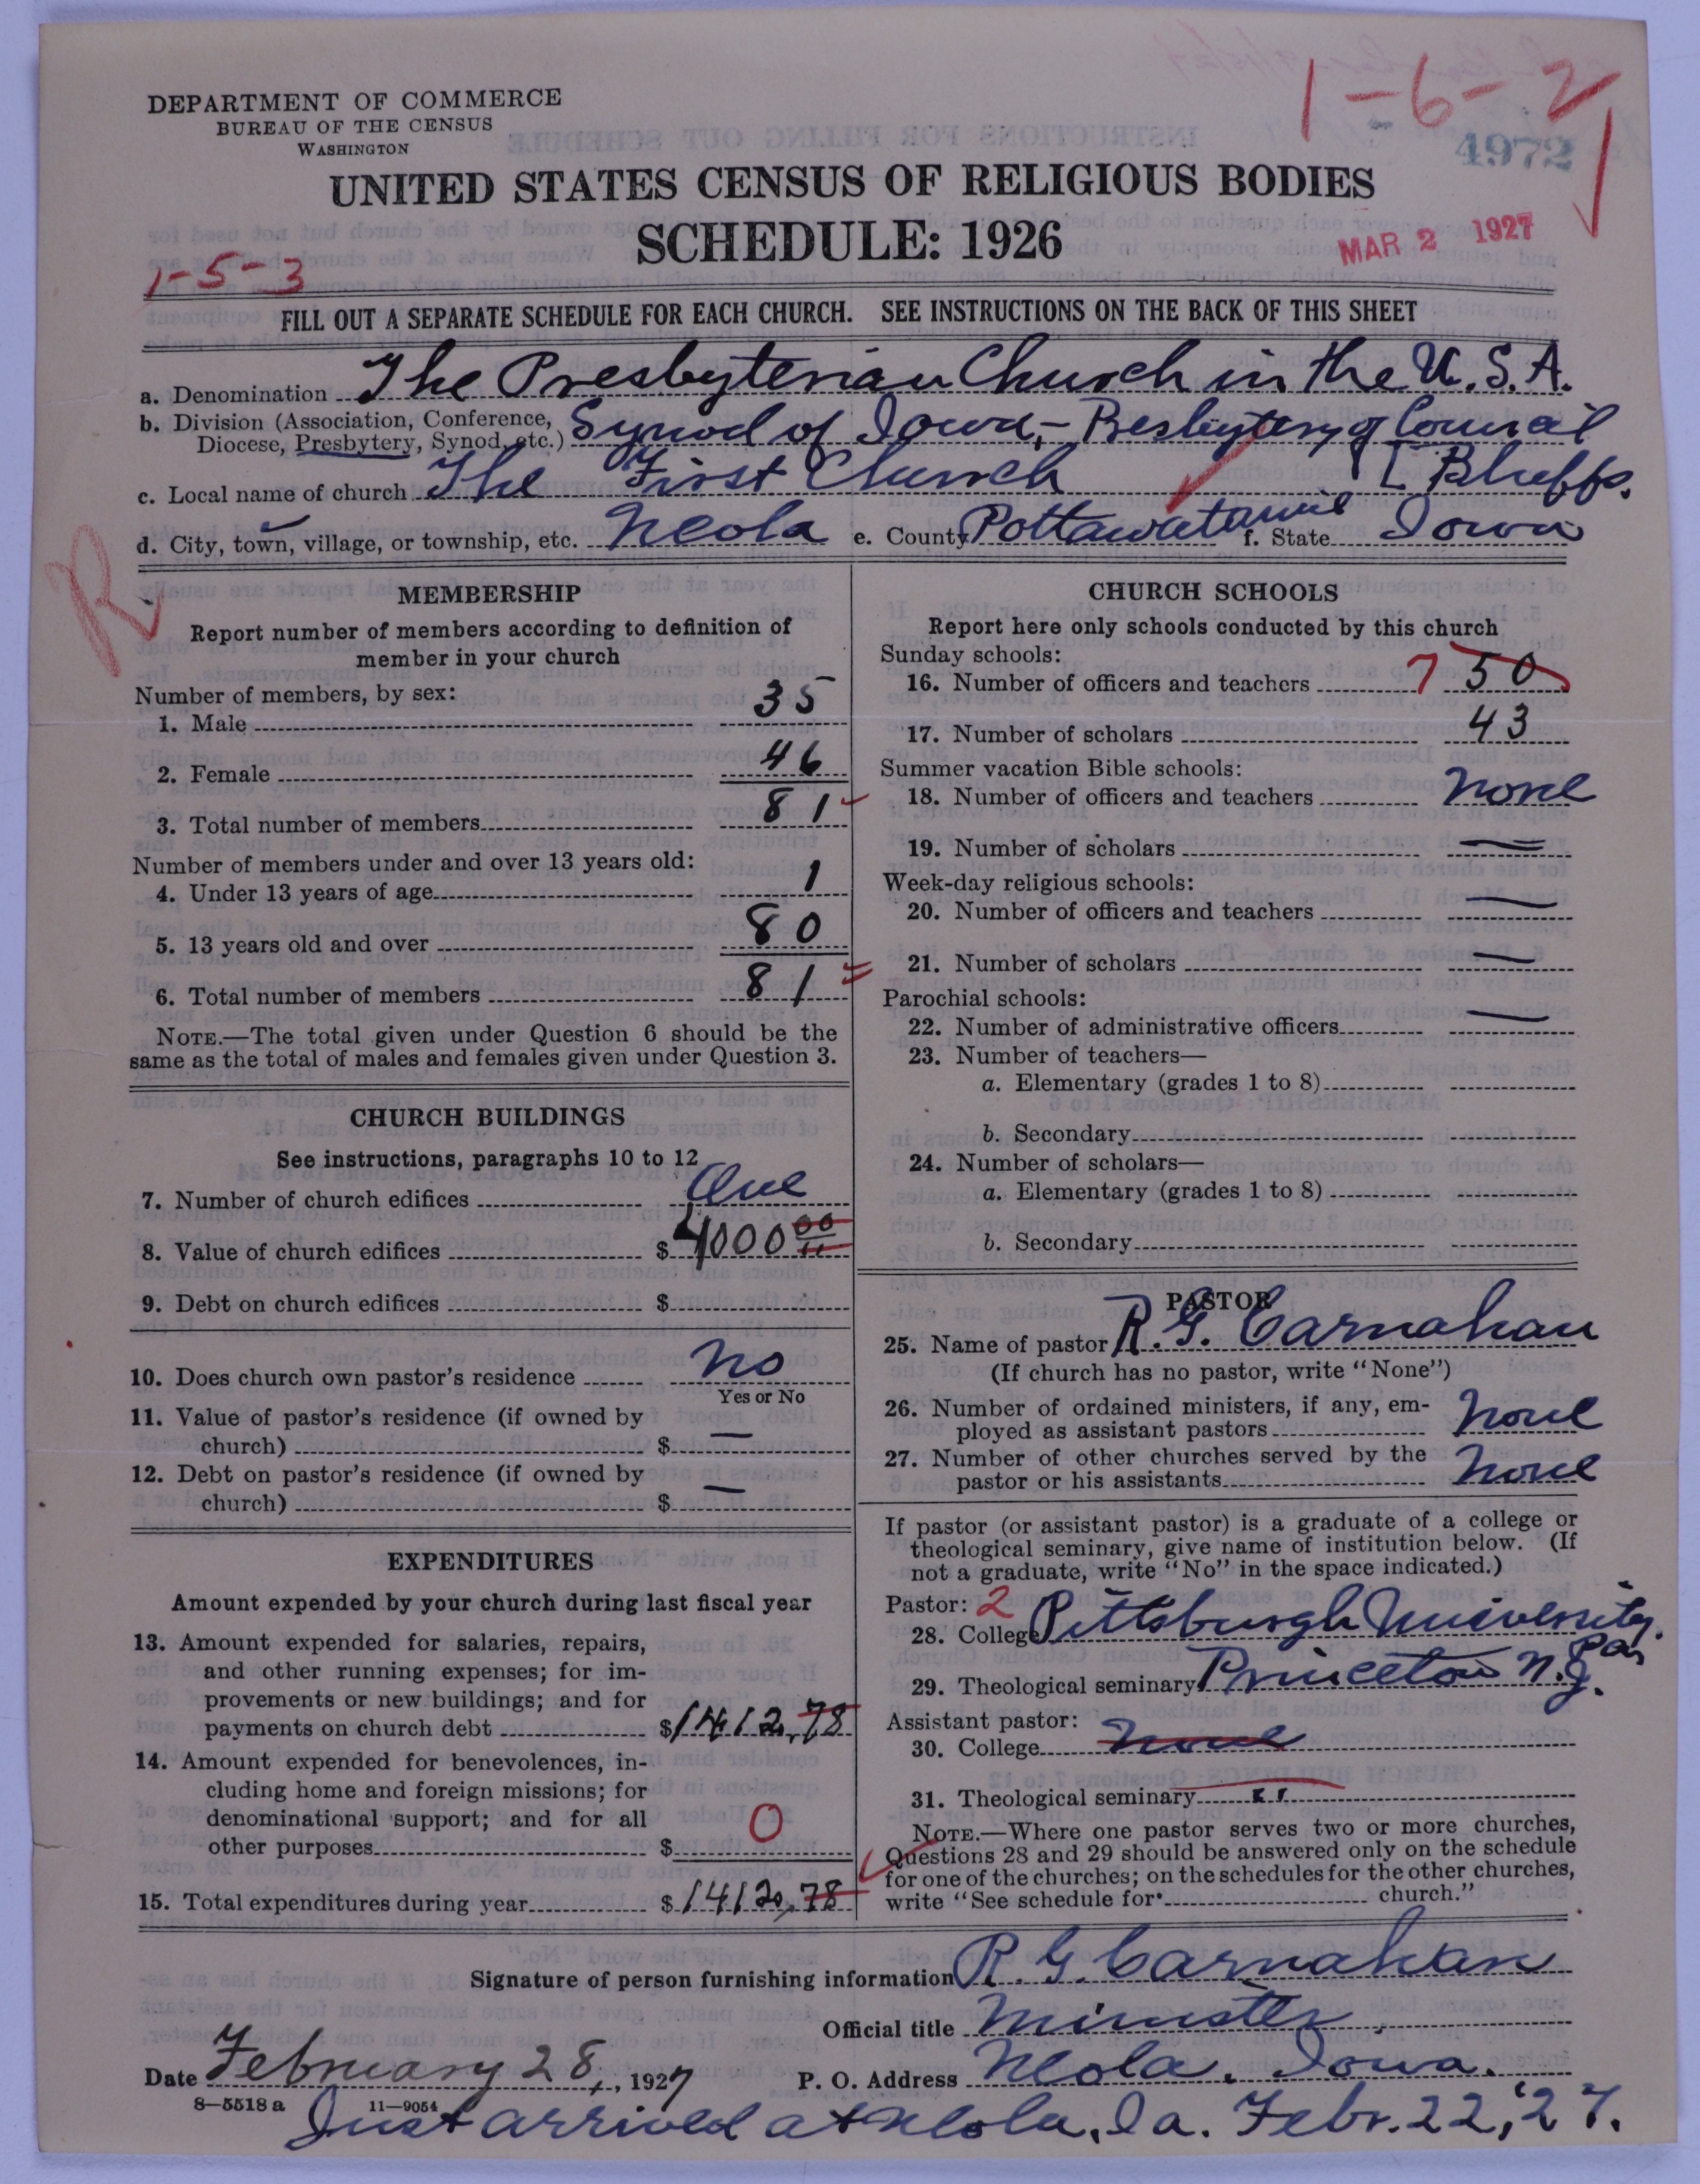 1-6-2
DEPARTMENT OF COMMERCE
BUREAU OF THE CENSUS
WASHINGTON
4972
UNITED STATES CENSUS OF RELIGIOUS BODIES
SCHEDULE: 1926
MAR 2 1927
1-5-3
FILL OUT A SEPARATE SCHEDULE FOR EACH CHURCH. SEE INSTRUCTIONS ON THE BACK OF THIS SHEET
a. Denomination The Presbyterian Church in the U.S.A.
b. Division (Association, Conference, Diocese, Presbytery, Synod, etc.) Synod of Iowa,- Presbytery of Council [Bluffs.
c. Local name of church The First Church
d. City, town, village, or township, etc. Neola e. County Pottawatamie f. State Iowa
R
MEMBERSHIP
Report number of members according to definition of
member in your church
Number of members, by sex:
1. Male 35
2. Female 46
3. Total number of members 81
Number of members under and over 13 years old:
4. Under 13 years of age 1
5. 13 years old and over 80
6. Total number of members 81
NOTE.—The total given under Question 6 should be the
same as the total of males and females given under Question 3.
CHURCH BUILDINGS
See instructions, paragraphs 10 to 12
7. Number of church edifices One
8. Value of church edifices $ 4000 00
9. Debt on church edifices $
10. Does church own pastor's residence No
Yes or No
11. Value of pastor's residence (if owned by
church) $ —
12. Debt on pastor's residence (if owned by
church) $ —
EXPENDITURES
Amount expended by your church during last fiscal year
13. Amount expended for salaries, repairs,
and other running expenses; for im-
provements or new buildings; and for
payments on church debt $1412.78
14. Amount expended for benevolences, in-
cluding home and foreign missions; for
denominational support; and for all
other purposes $ 0
15. Total expenditures during year $1412.78
CHURCH SCHOOLS
Report here only schools conducted by this church
Sunday schools:
16. Number of officers and teachers 7 50
17. Number of scholars 43
Summer vacation Bible schools:
18. Number of officers and teachers None
19. Number of scholars —
Week-day religious schools:
20. Number of officers and teachers —
21. Number of scholars —
Parochial schools:
22. Number of administrative officers —
23. Number of teachers—
a. Elementary (grades 1 to 8)
b. Secondary
24. Number of scholars—
a. Elementary (grades 1 to 8)
b. Secondary
PASTOR
25. Name of pastor R. G. Carnahan
(If church has no pastor, write "None")
26. Number of ordained ministers, if any, em-
ployed as assistant pastors None
27. Number of other churches served by the
pastor or his assistants None
If pastor (or assistant pastor) is a graduate of a college or
theological seminary, give name of institution below. (If
not a graduate, write "No" in the space indicated.)
Pastor: 2
28. College Pittsburgh University, Pa,
29. Theological seminary Princeton N.J.
Assistant pastor:
30. College None
31. Theological seminary "
NOTE.—Where one pastor serves two or more churches,
Questions 28 and 29 should be answered only on the schedule
for one of the churches; on the schedules for the other churches,
write "See schedule for church."
Signature of person furnishing information R. G. Carnahan
Official title Minister.
Date February 28, 1927 P. O. Address Neola, Iowa.
8—5518 a 11—9054
Just arrived at Neola, Ia. Febr. 22, '27.